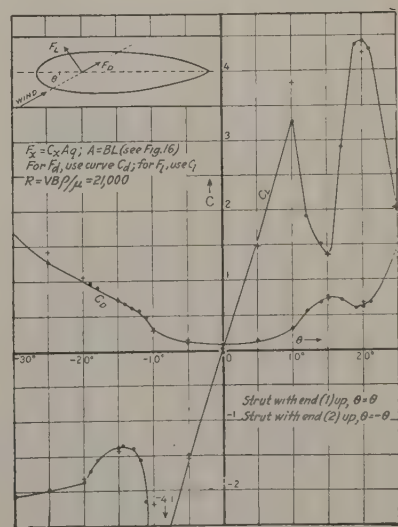 F_L
θ
F_D
WIND
F_x = C_x Aq; A = BL (see Fig. 16)
For F_d, use curve C_d; for F_l, use C_l
R = VBρ/μ = 21,000
4
3
C
2
1
C_D
θ
-30°
-20°
-10°
0
10°
20°
Strut with end (1) up, θ=θ
Strut with end (2) up, θ=-θ
-1
-2
-4